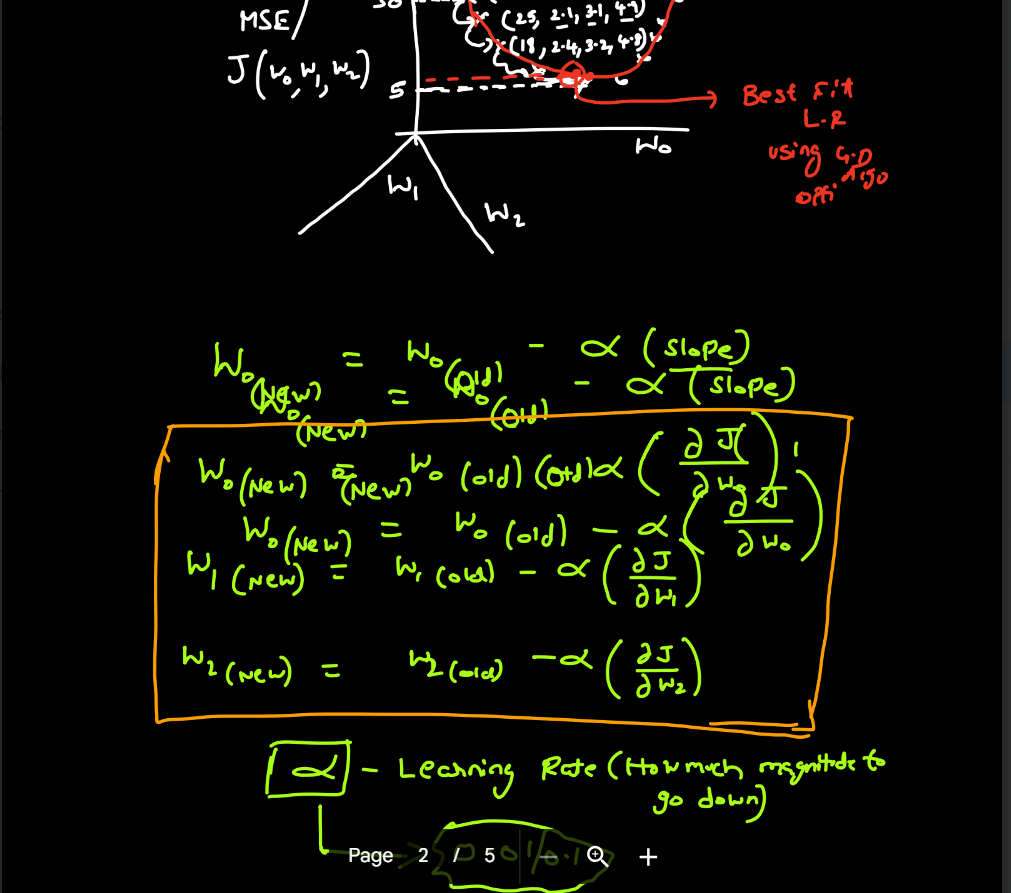 MSE/
J(W₀,W₁,W₂)
(25, 2.1, 3.1, 4.9)
(18, 2.4, 3.2, 4.8)
5
Best Fit
L.R
using G.D
Algo
W₀
W₁
W₂
W₀(New) = W₀(old) - α (slope)
W₀(New) = W₀(old) - α (slope)
W₀(New) = W₀(old) α (∂J/∂W₀)
W₀(New) = W₀(old) - α (∂J/∂W₀)
W₁(New) = W₁(old) - α (∂J/∂W₁)
W₂(New) = W₂(old) - α (∂J/∂W₂)
α - Learning Rate (How much magnitude to
go down)
Page 2 / 5 — +